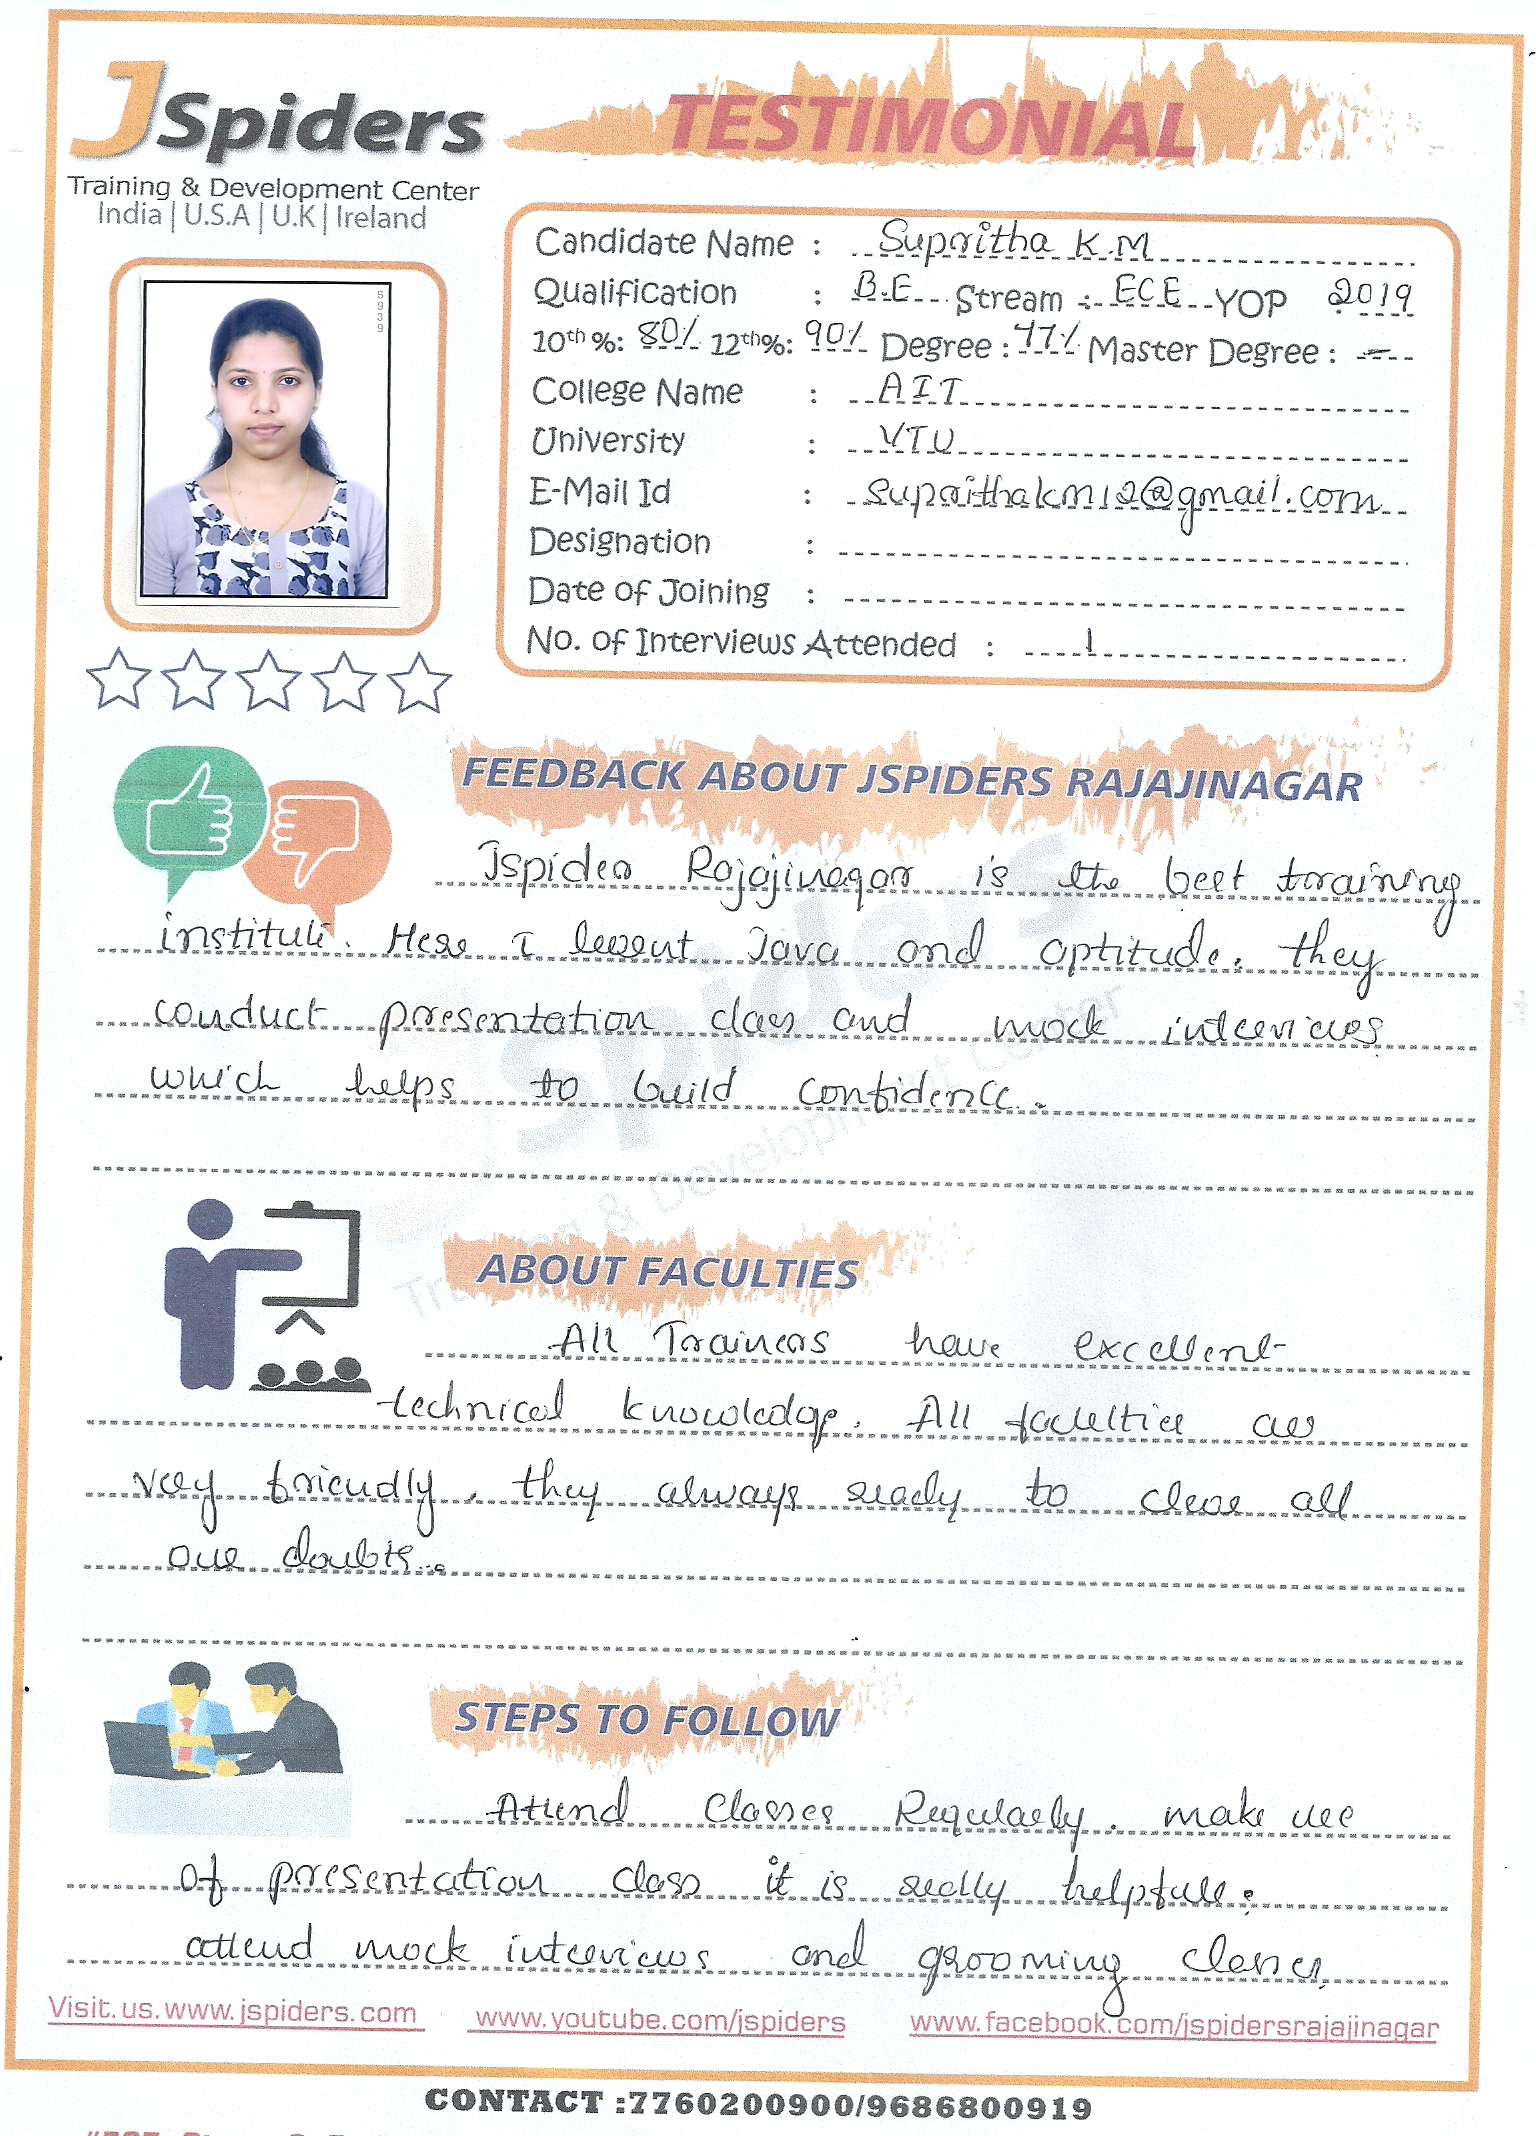 JSpiders
Training & Development Center
India | U.S.A | U.K | Ireland
TESTIMONIAL
Candidate Name : Supritha K.M
Qualification : B.E Stream : ECE YOP 2019
10th %: 80% 12th%: 90% Degree : 77% Master Degree : -
College Name : AIT
University : VTU
E-Mail Id : suprithakm12@gmail.com
Designation :
Date of Joining :
No. of Interviews Attended : 1
5939
FEEDBACK ABOUT JSPIDERS RAJAJINAGAR
Jspider Rajajinagar is the best training
institute. Here I learnt Java and aptitude. they
conduct presentation class and mock interviews
which helps to build confidence.
Spiders
Training & Development Center
ABOUT FACULTIES
All Trainers have excellent
technical knowledge. All faculties are
very friendly. they always ready to clear all
our doubts..
STEPS TO FOLLOW
Attend Classes Regularly. make use
of presentation class it is really helpfull.
attend mock interviews and grooming classes
Visit.us.www.jspiders.com www.youtube.com/jspiders www.facebook.com/jspidersrajajinagar
CONTACT :7760200900/9686800919